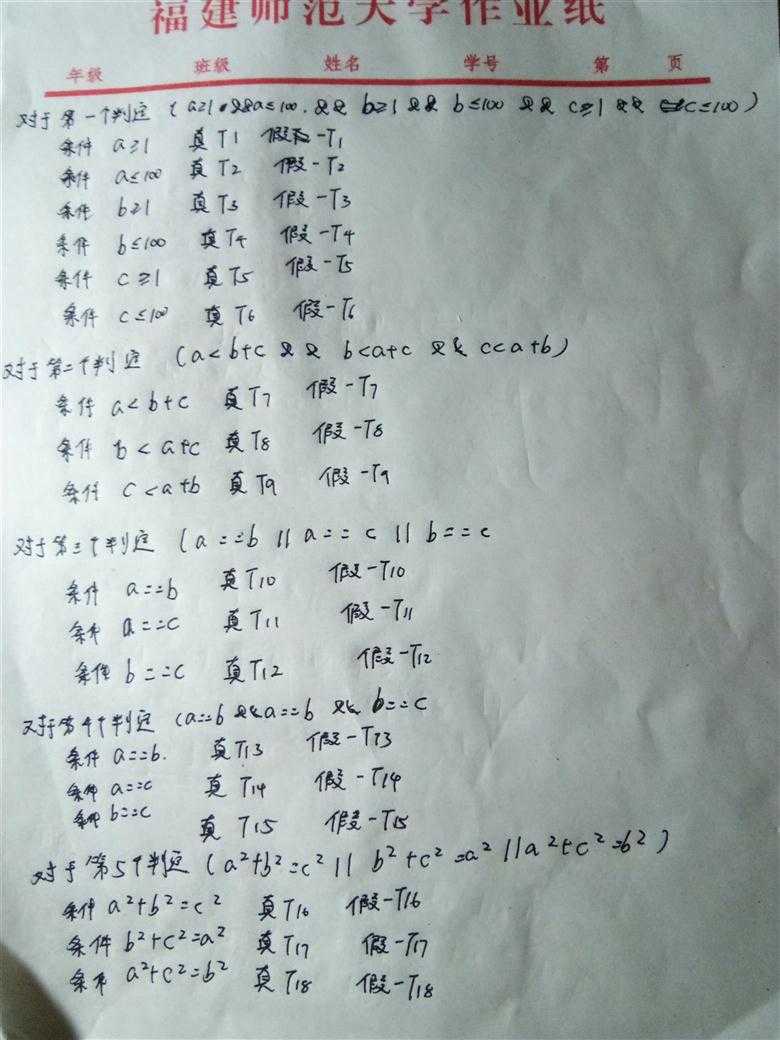 福建师范大学作业纸
年级 班级 姓名 学号 第 页
对于第一个判定 (a≥1 &&a≤100 && b≥1 && b≤100 && c≥1 && c≤100)
条件 a≥1 真T1 假-T1
条件 a≤100 真T2 假-T2
条件 b≥1 真T3 假-T3
条件 b≤100 真T4 假-T4
条件 c≥1 真T5 假-T5
条件 c≤100 真T6 假-T6
对于第二个判定 (a<b+c && b<a+c && c<a+b)
条件 a<b+c 真T7 假-T7
条件 b<a+c 真T8 假-T8
条件 c<a+b 真T9 假-T9
对于第三个判定 (a==b || a==c || b==c
条件 a==b 真T10 假-T10
条件 a==c 真T11 假-T11
条件 b==c 真T12 假-T12
对于第4个判定 (a==b &&a==b && b==c
条件 a==b. 真T13 假-T13
条件 a==c 真T14 假-T14
条件 b==c 真T15 假-T15
对于第5个判定 (a²+b²=c² || b²+c²=a² ||a²+c²=b²)
条件 a²+b²=c² 真T16 假-T16
条件 b²+c²=a² 真T17 假-T17
条件 a²+c²=b² 真T18 假-T18